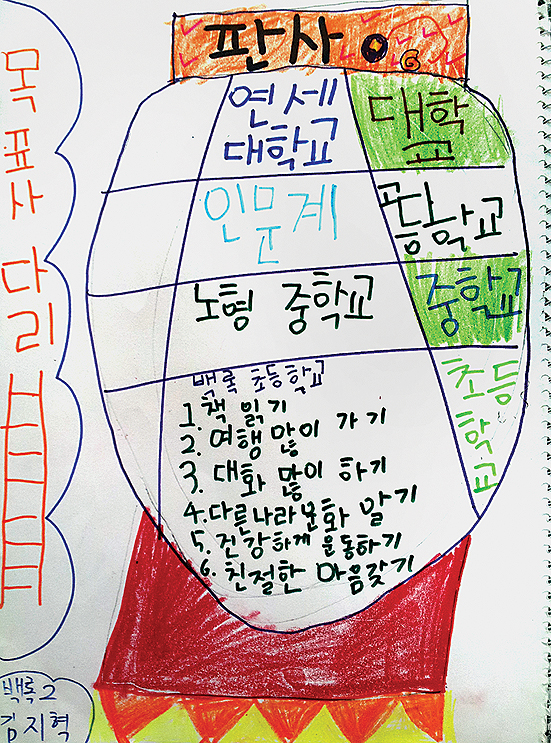 판사
목표사다리
연세
대학교
대학
교
인문계
고등학교
노형 중학교
중학교
백록 초등학교
초등
학교
1. 책 읽기
2. 여행 많이 가기
3. 대화 많이 하기
4. 다른나라문화 알기
5. 건강하게 운동하기
6. 친절한 마음갖기
백록2
김지혁